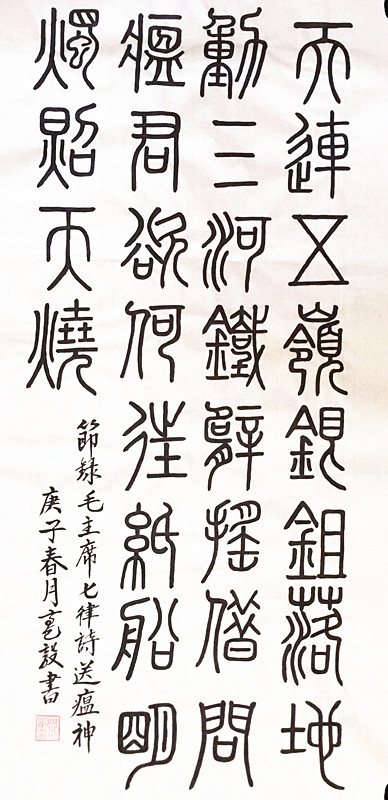 天連五嶺銀鉏落地
動三河鐵臂搖借問
瘟君欲何往紙船明
燭照天燒
節錄毛主席七律詩送瘟神
庚子春月毅書